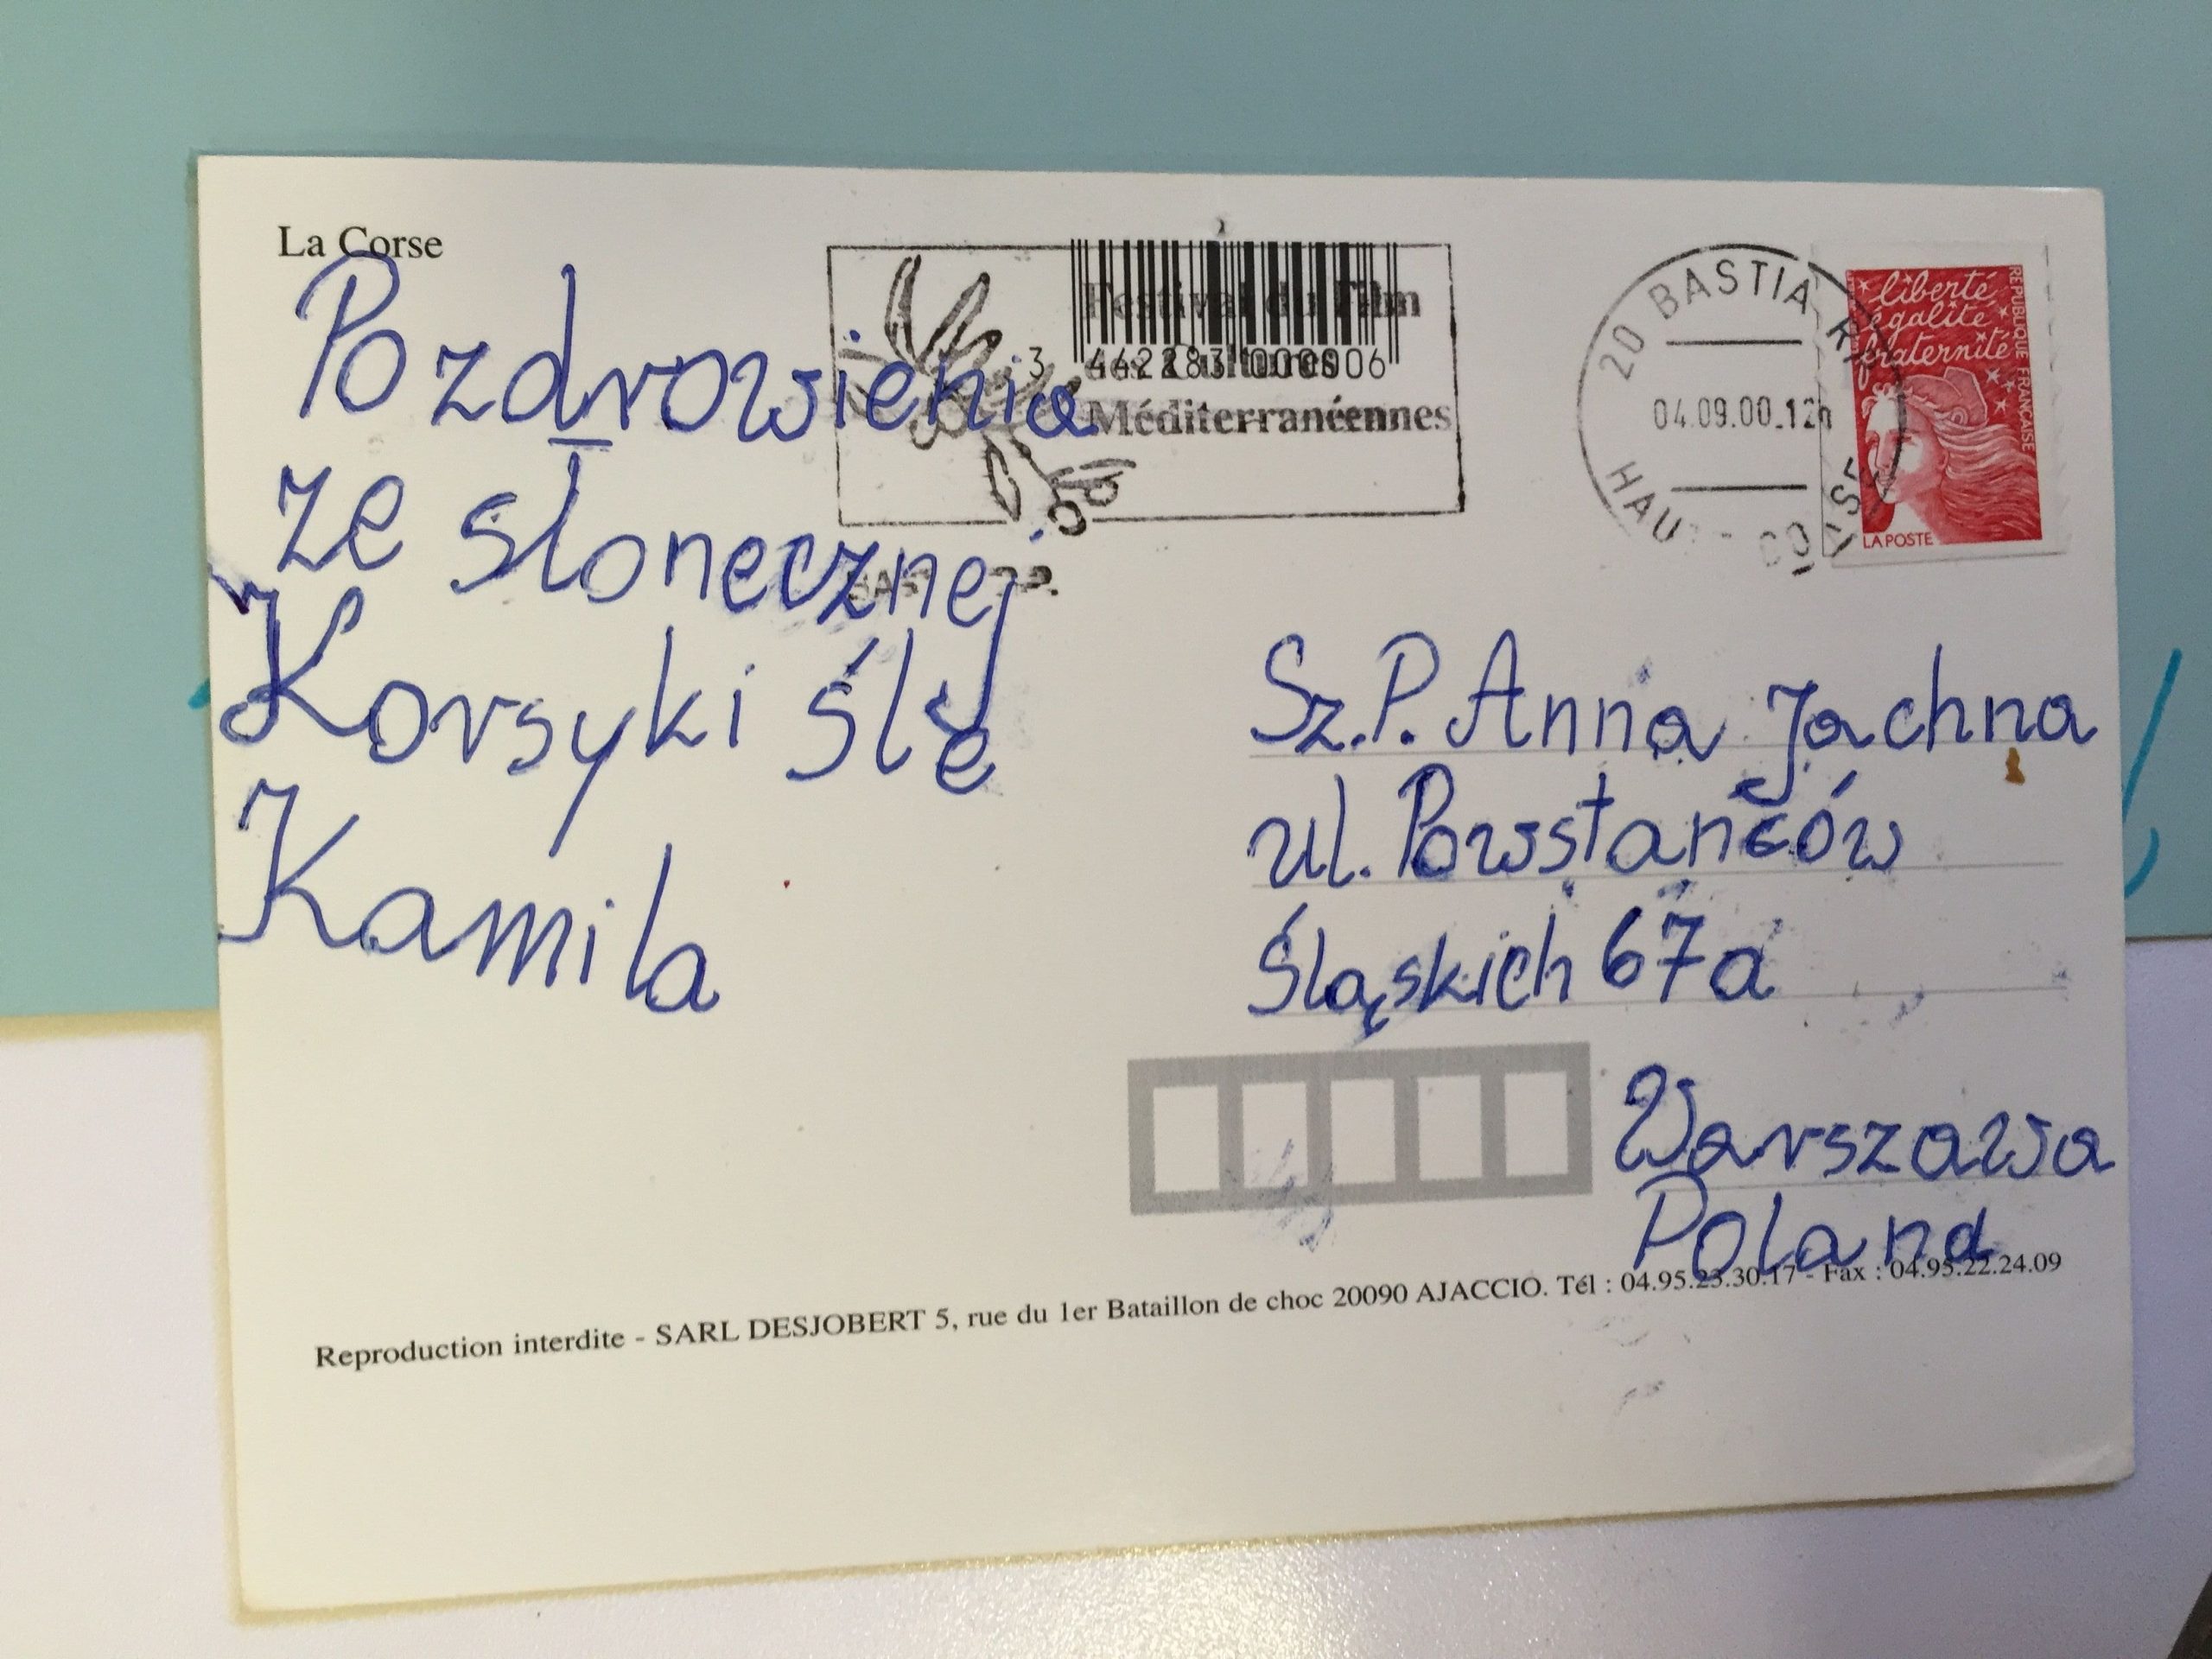 La Corse
Pozdrowienia
ze słonecznej
Korsyki ślę
Kamila
Festival du Film
des Cultures
Méditerranéennes
3 442283 000006
20 BASTIA
04.09.00.12h
HAUTE CORSE
liberté
égalité
fraternité
REPUBLIQUE FRANÇAISE
LA POSTE
Sz.P. Anna Jachna
ul. Powstańców
Śląskich 67a
Warszawa
Poland
Reproduction interdite - SARL DESJOBERT 5, rue du 1er Bataillon de choc 20090 AJACCIO. Tél : 04.95.23.30.17 - Fax : 04.95.22.24.09